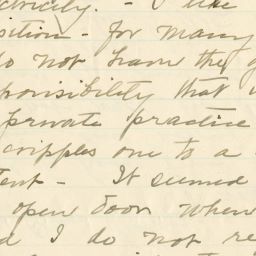 - I like
sition - for many
do not have the g
ponsibility that
private practice
cripples one to a
tent - It seemed
open door when
d I do not re